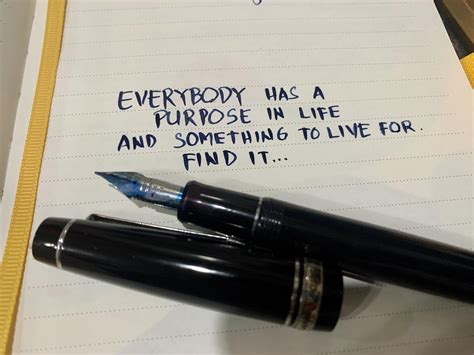 EVERYBODY HAS A
PURPOSE IN LIFE
AND SOMETHING TO LIVE FOR.
FIND IT...